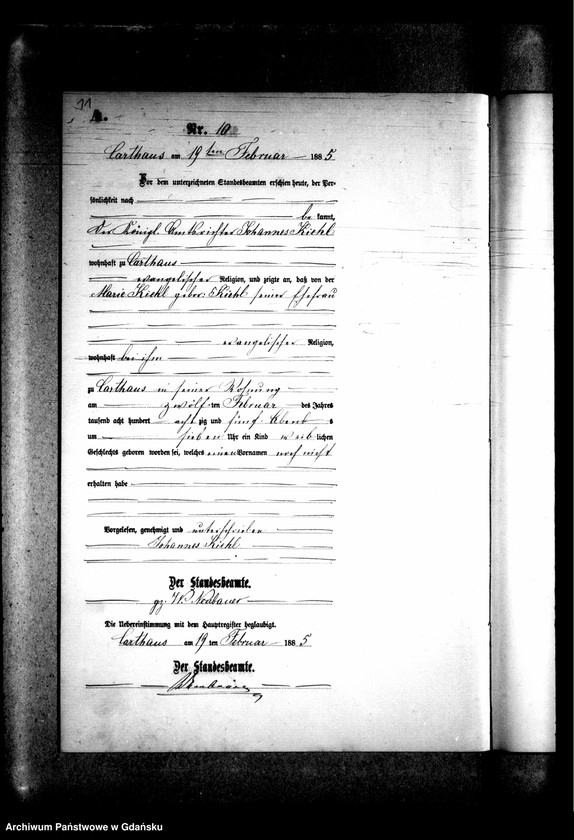 11
A.
Nr. 10
Carthaus am 19ten Februar 1885
Vor dem unterzeichneten Standesbeamten erschien heute, der Per-
sönlichkeit nach
be kannt,
der Königl. Amtsrichter Johannes Kiehl
wohnhaft zu Carthaus
evangelischer Religion, und zeigte an, daß von der
Marie Kiehl gebor. Kiehl seiner Ehefrau
evangelischer Religion,
wohnhaft bei ihm
zu Carthaus in seiner Wohnung
am zwölf ten Februar des Jahres
tausend acht hundert acht zig und fünf Abend s
um sieben Uhr ein Kind weib lichen
Geschlechts geboren worden sei, welches einen Vornamen noch nicht
erhalten habe
Vorgelesen, genehmigt und unterschrieben
Johannes Kiehl
Der Standesbeamte.
gz. Neubauer
Die Uebereinstimmung mit dem Hauptregister beglaubigt.
Carthaus am 19 ten Februar 1885
Der Standesbeamte.
Archiwum Państwowe w Gdańsku